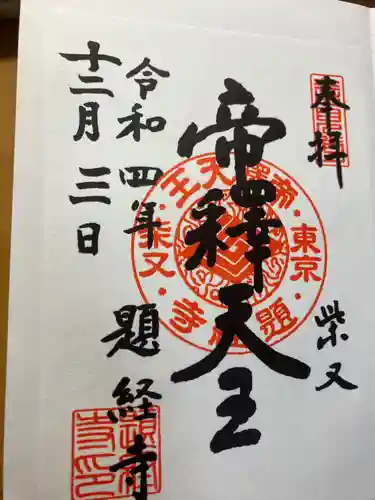 奉拝
柴又
帝釋天王
令和四年
十二月三日
題経寺
東京
柴又
題経寺
帝釋天王